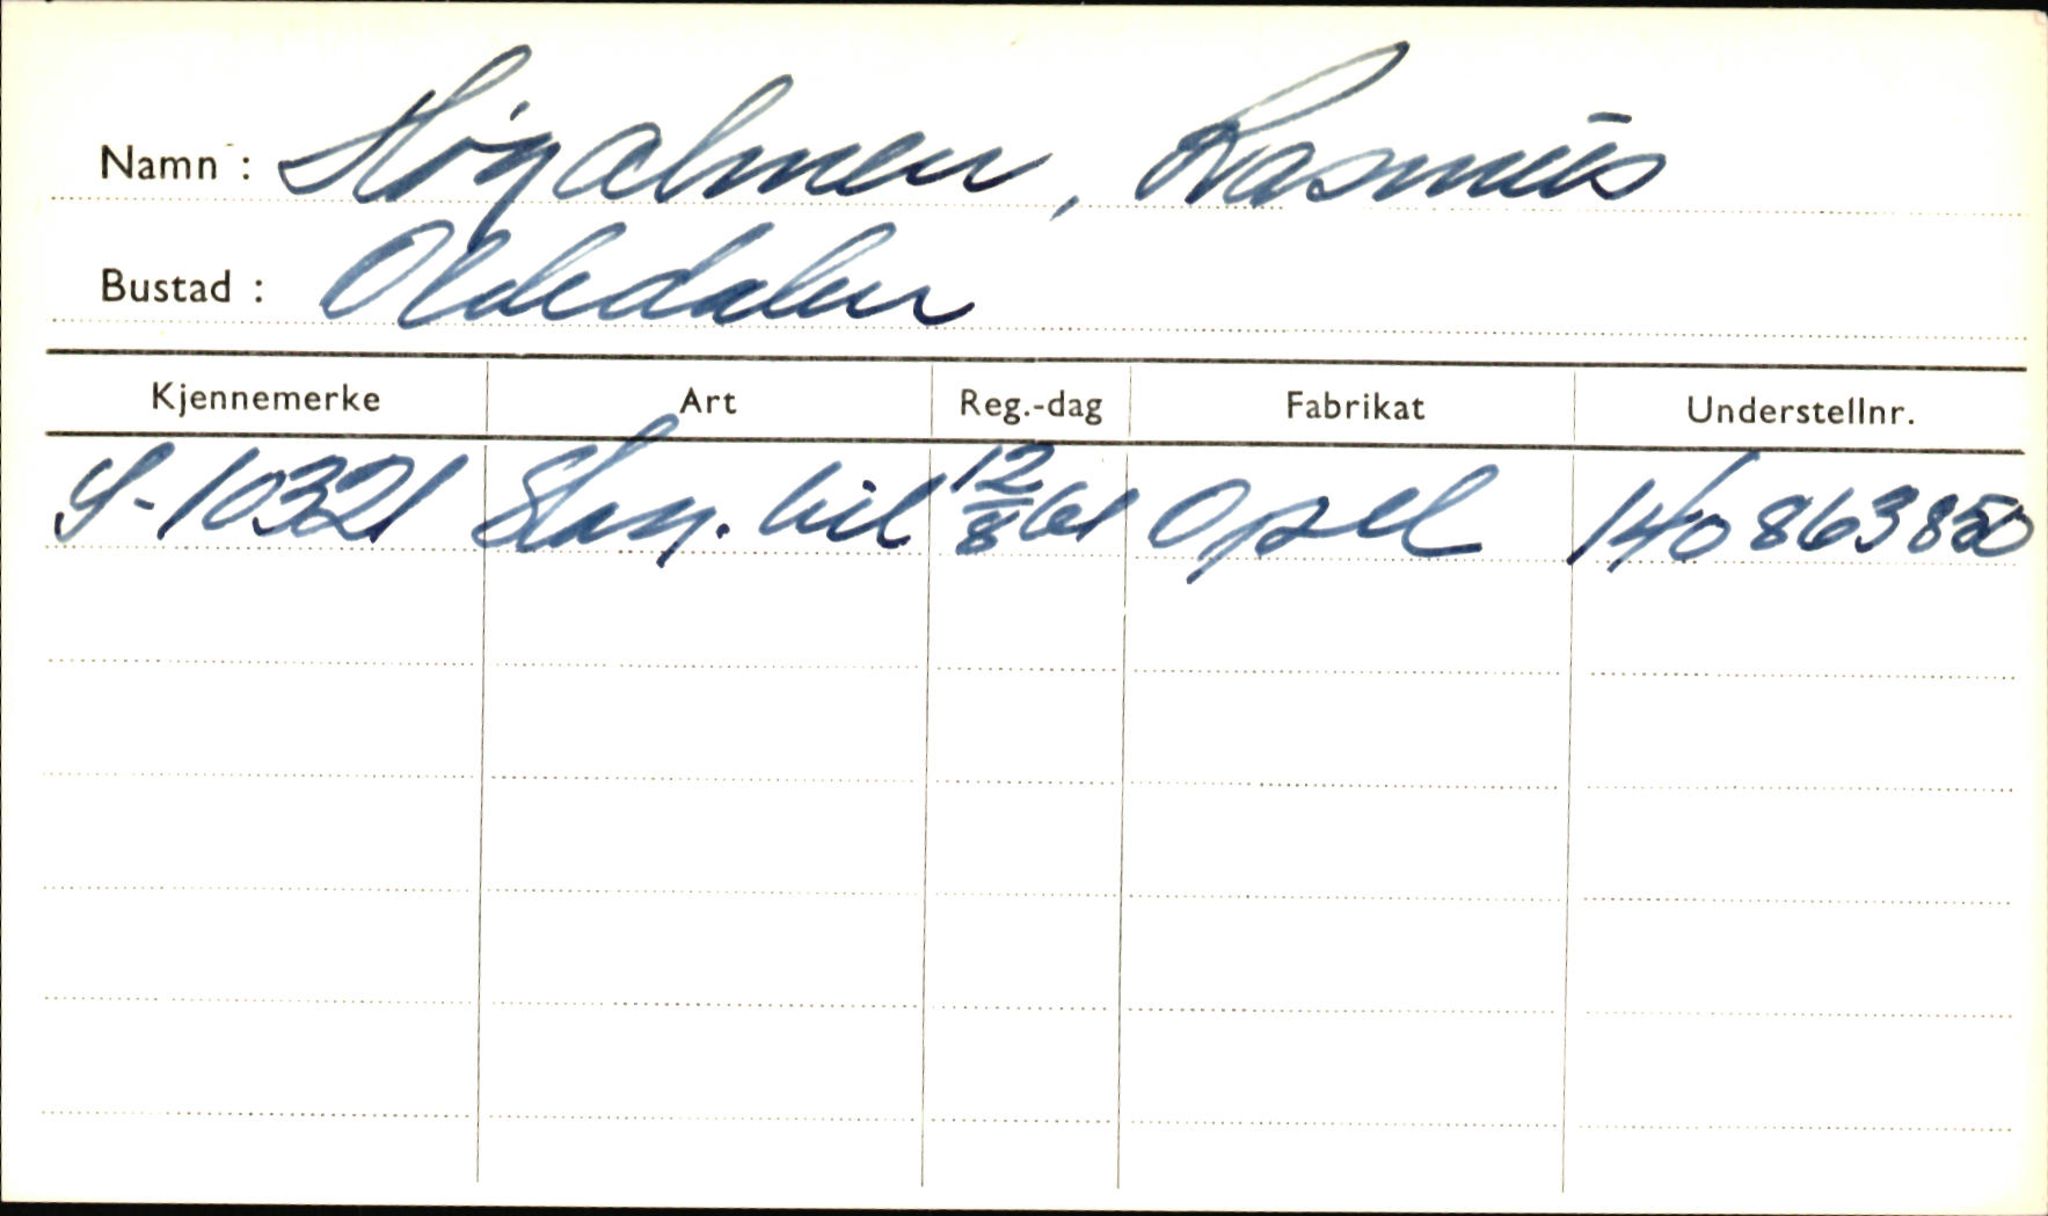 Namn : Høgalmen, Rasmus
Bustad : Oldedalen
Kjennemerke Art Reg.-dag Fabrikat Understellnr.
S-10321 Stasj. bil 12/8 61 Opel 140863850